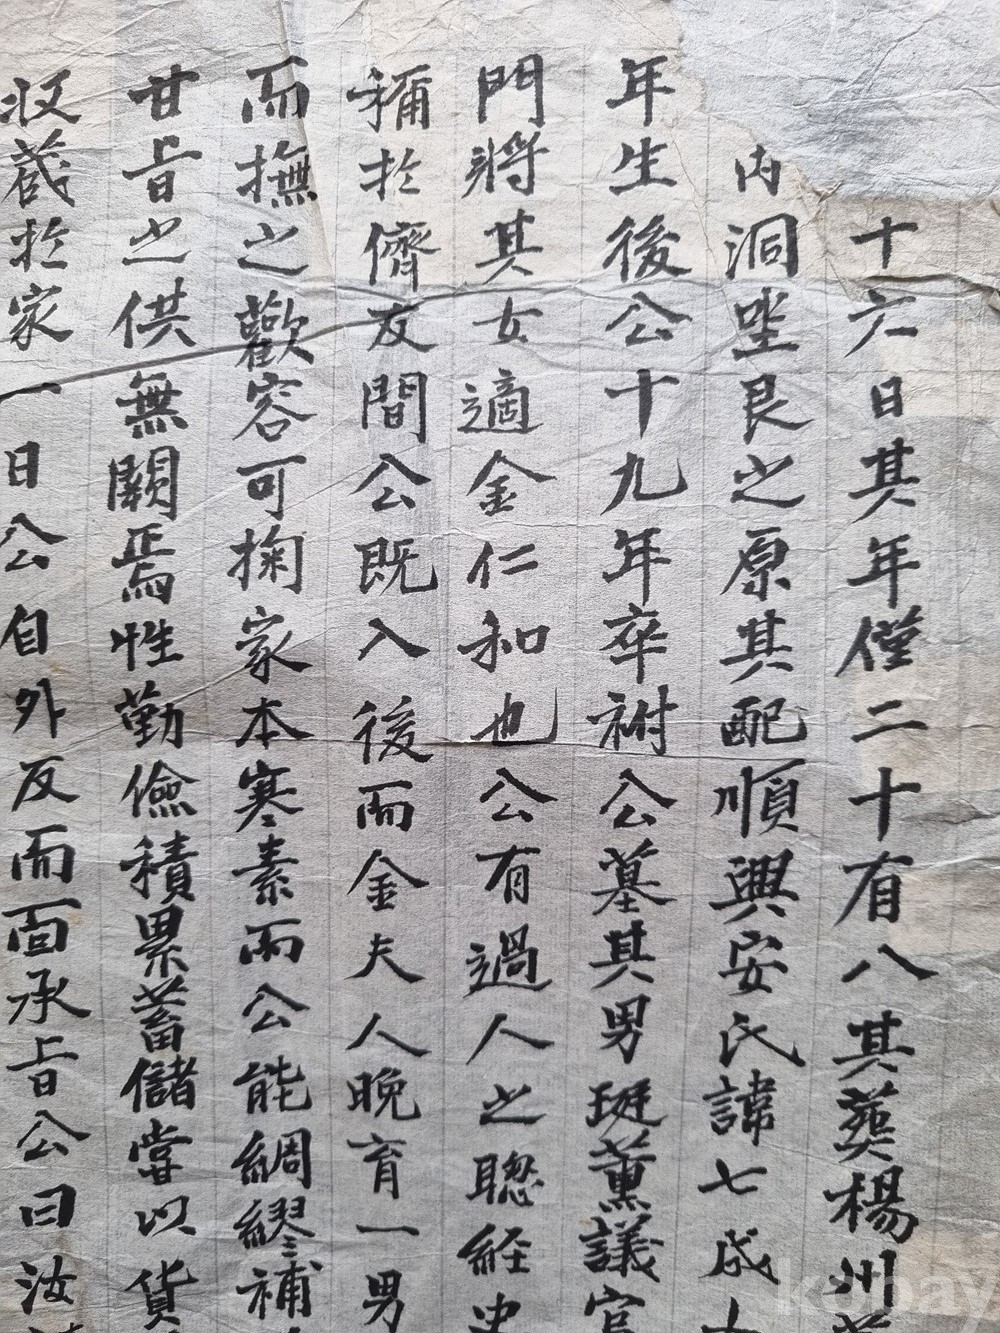 十六日其年僅二十有八其葬楊州
內洞坐艮之原其配順興安氏諱七成
年生後公十九年卒祔公墓其男珽薰議官
門將其女適金仁和也公有過人之聰経史
稱於儕友間公既入後而金夫人晚育一男
而撫之歡容可掬家本寒素而公能綢繆補
甘旨之供無闕焉性勤儉積累蓄儲當以貨
収藏於家一日公自外反而面承旨公曰汝
kobay